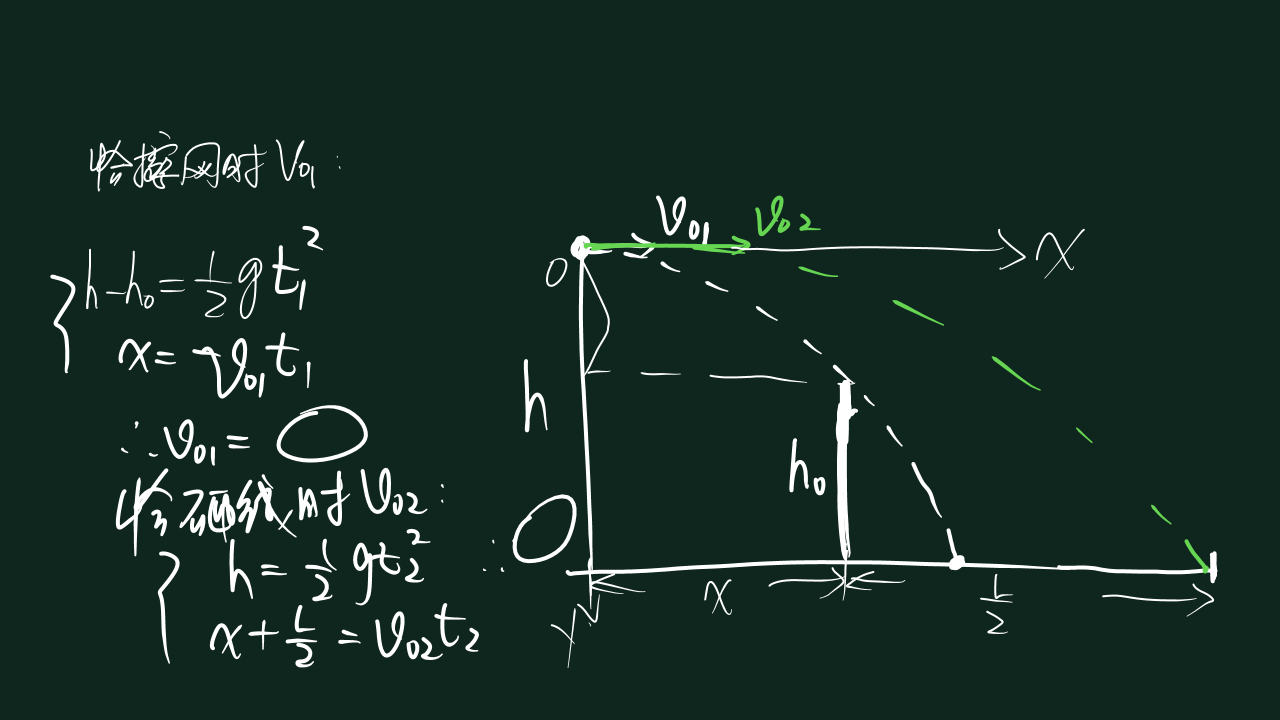 恰擦网时 V₀₁:
h-h₀=½gt₁²
x=v₀₁t₁
∴v₀₁=
恰砸线时 V₀₂:
h=½gt₂²
x+L/2=v₀₂t₂
∴
v₀₁ v₀₂
x
O
h
h₀
x
L/2
y